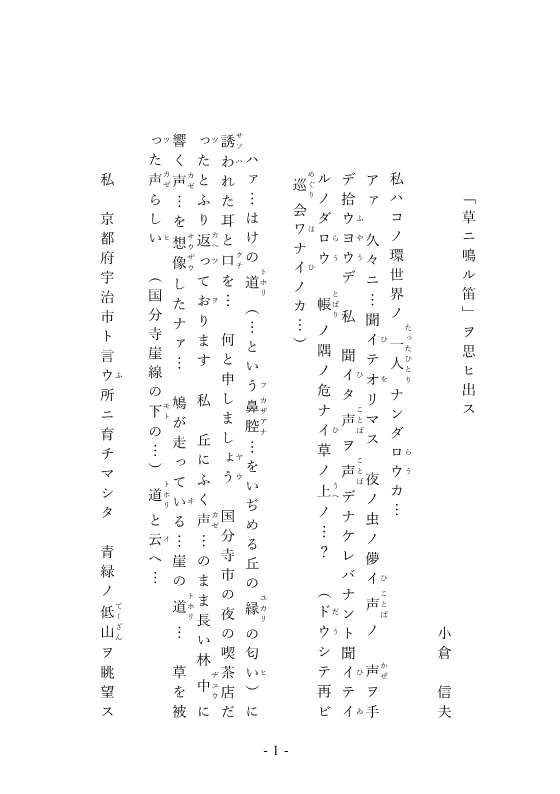 「草ニ鳴ル笛」ヲ思ヒ出ス
小倉　信夫
私ハコノ環世界ノ　一人ナンダロウカ…
アァ　久々ニ…聞イテオリマス　夜ノ虫ノ儚イ声ノ　声ヲ手
デ拾ウヨウデ　私　聞イタ声ヲ声デナケレバナント聞イテイ
ルノダロウ　帳ノ隅ノ危ナイ草ノ上ノ…？　（ドウシテ再ビ
巡会ワナイノカ…）
ハァ…はけの道（…という鼻腔…をいぢめる丘の縁の匂い）に
誘われた耳と口を…　何と申しましょう　国分寺市の夜の喫茶店だ
ったとふり返っております　私　丘にふく声…のまま長い林中に
響く声…を想像したナァ…　鳩が走っている…崖の道…　草を被
った声らしい　（国分寺崖線の下の…）道と云へ…
私　京都府宇治市ト言ウ所ニ育チマシタ　青緑ノ低山ヲ眺望ス
- 1 -